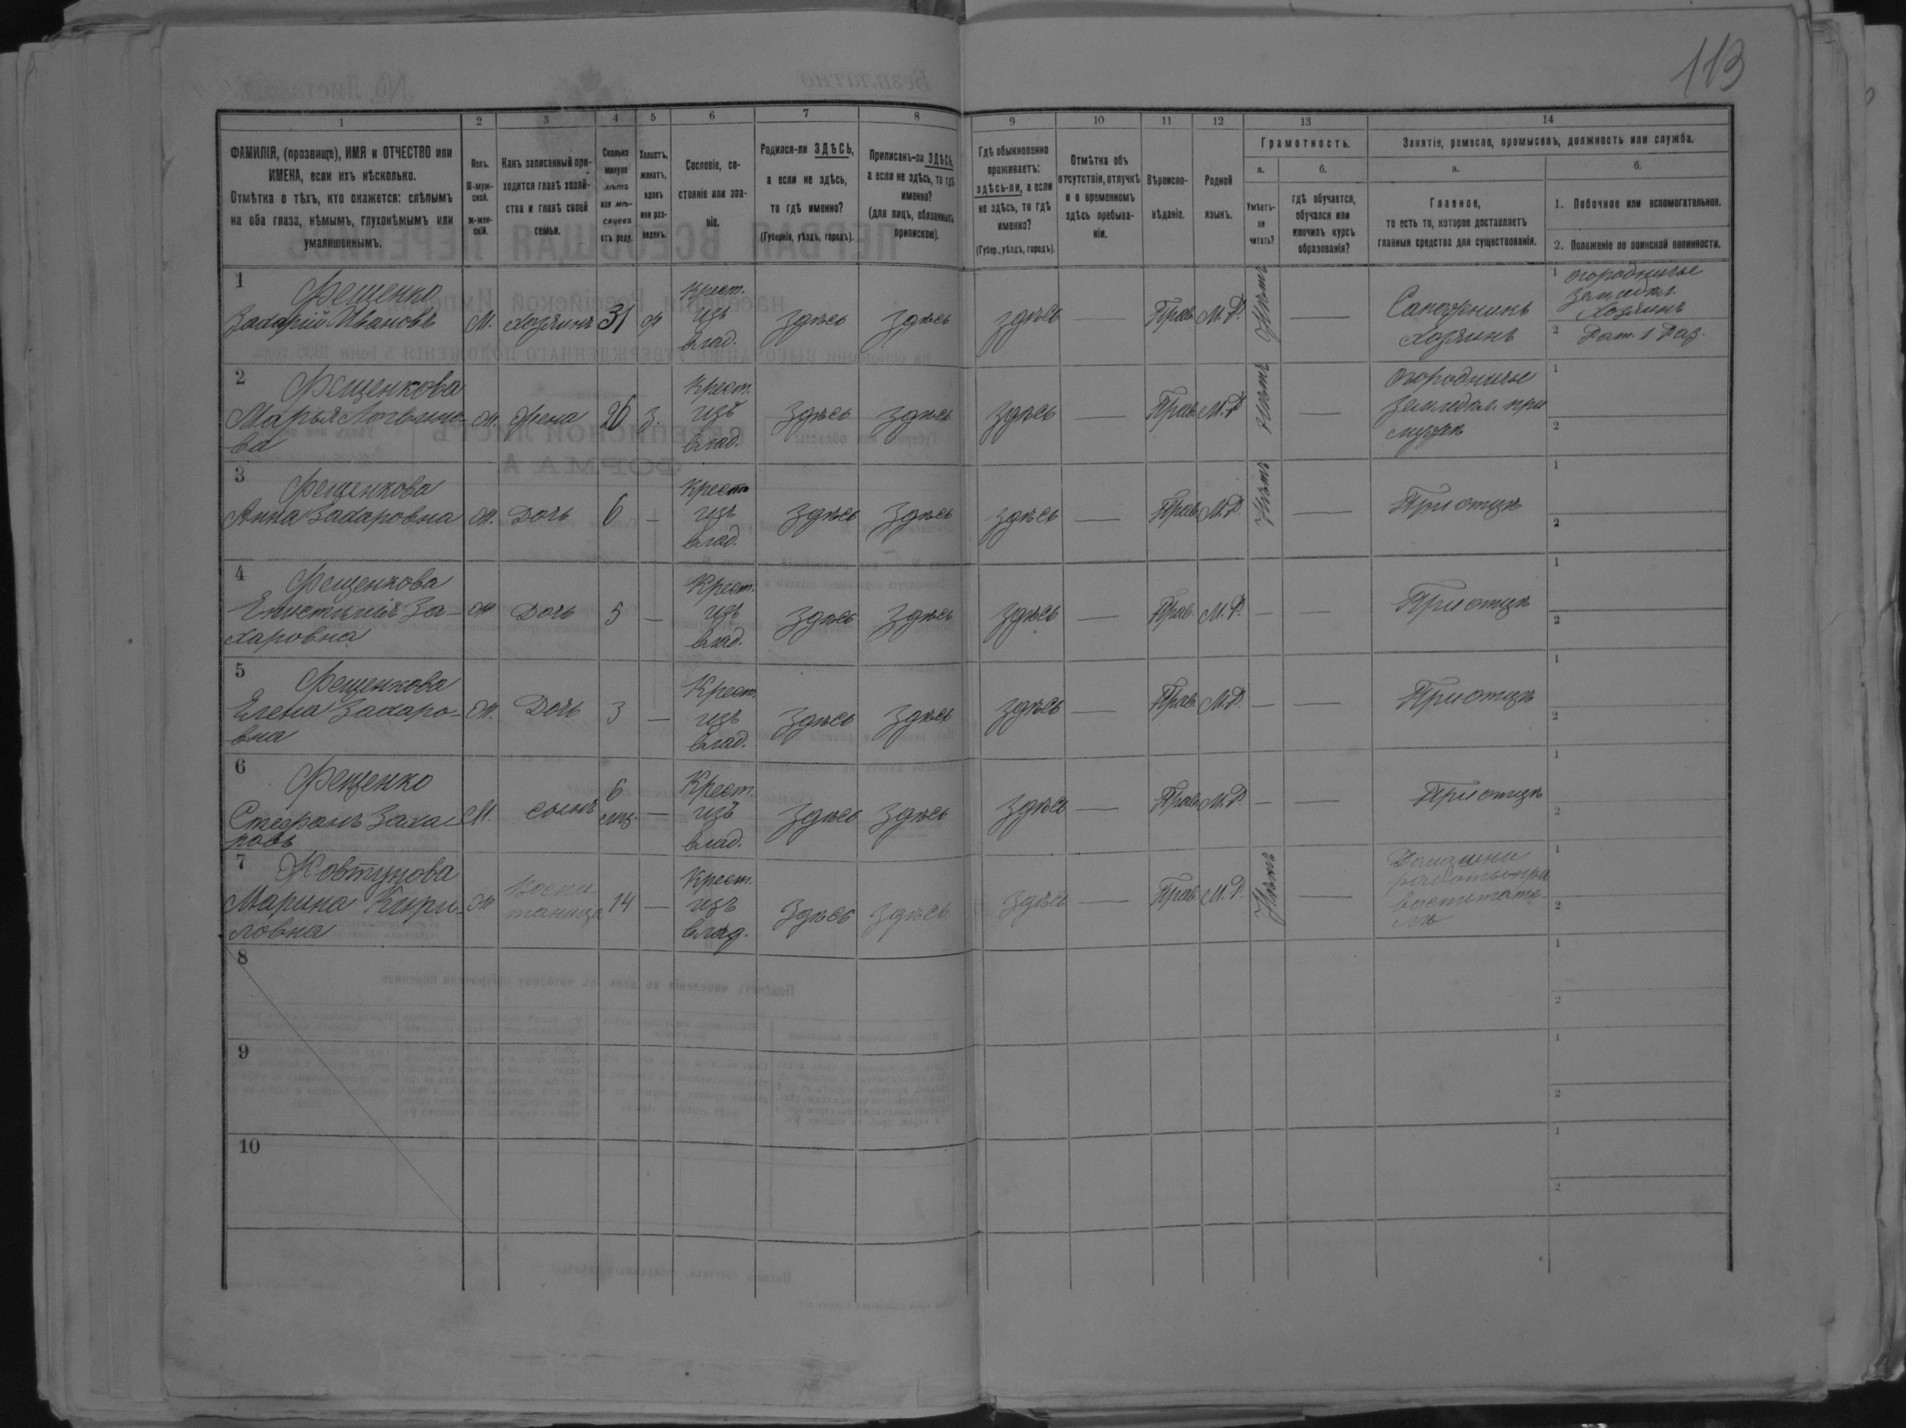 113
1
2
3
4
5
6
7
8
9
10
11
12
13
14
ФАМИЛІЯ, (прозвище), ИМЯ и ОТЧЕСТВО или
ИМЕНА, если ихъ нѣсколько.
Отмѣтка о тѣхъ, кто окажется: слѣпымъ
на оба глаза, нѣмымъ, глухонѣмымъ или
умалишеннымъ.
Полъ.
М-муж-
ской.
ж-жен-
скій.
Какъ записанный при-
ходится главѣ хозяй-
ства и главѣ своей
семьи.
Сколько
минуло
лѣтъ
или мѣ-
сяцевъ
отъ роду.
Холостъ,
женатъ,
вдовъ
или раз-
веденъ.
Сословіе, со-
стояніе или зва-
ніе.
Родился-ли ЗДѢСЬ,
а если не здѣсь,
то гдѣ именно?
(Губернія, уѣздъ, городъ).
Приписанъ-ли ЗДѢСЬ,
а если не здѣсь, то гдѣ
именно?
(для лицъ, обязанныхъ
припискою).
Гдѣ обыкновенно
проживаетъ:
здѣсь-ли, а если
не здѣсь, то гдѣ
именно?
(Губер., уѣздъ, городъ).
Отмѣтка объ
отсутствіи, отлучкѣ
и о временномъ
здѣсь пребыва-
ніи.
Вѣроиспо-
вѣданіе.
Родной
языкъ.
Грамотность.
а.
Умѣетъ-
ли
читать?
б.
гдѣ обучается,
обучался или
кончилъ курсъ
образованія?
Занятіе, ремесло, промыселъ, должность или служба.
а.
Главное,
то есть то, которое доставляетъ
главныя средства для существованія.
б.
1. Побочное или вспомогательное.
2. Положеніе по воинской повинности.
1 Фещенко
Захарій Ивановъ М. Хозяинъ 31 ж Крест. изъ влад. здѣсь здѣсь здѣсь — Прав М.Р. Нѣтъ — Сапожникъ хозяинъ
1 огородничье земледѣл. хозяинъ
2 Рат. 1 Раз.
2 Фещенкова
Марья Логвино-
ва ж. Жена 26 З. Крест. изъ влад. здѣсь здѣсь здѣсь — Прав М.Р. Нѣтъ — Огородничье земледѣл. при мужѣ
1
2
3 Фещенкова
Анна Захаровна ж. Дочь 6 — Крест изъ влад. здѣсь здѣсь здѣсь — Прав М.Р. Нѣтъ — При отцѣ
1
2
4 Фещенкова
За-
харовна ж Дочь 5 — Крест. изъ влад. здѣсь здѣсь здѣсь — Прав М.Р. — — При отцѣ
1
2
5 Фещенкова
Елена Захаро-
вна ж. Дочь 3 — Крест. изъ влад. здѣсь здѣсь здѣсь — Прав М.Р. — — При отцѣ
1
2
6 Фещенко
Стефанъ Заха-
ровъ М. сынъ 6 мѣс. — Крест. изъ влад. здѣсь здѣсь здѣсь — Прав М.Р. — — При отцѣ
1
2
7 Ковтунова
Марина Кири-
ловна ж Воспи таница 14 — Крест. изъ влад. здѣсь здѣсь здѣсь — Прав М.Р. Нѣтъ — Домашна работы при воспитате-лѣ
1
2
8
1
2
9
1
2
10
1
2